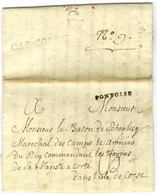 N° 9.
PONTOISE
A Monsieur
Monsieur le Baron de
Marechal des Camps et Armées
du Roy Commandant les Troupes
de sa Majesté a Corte
dans l'isle de Corse